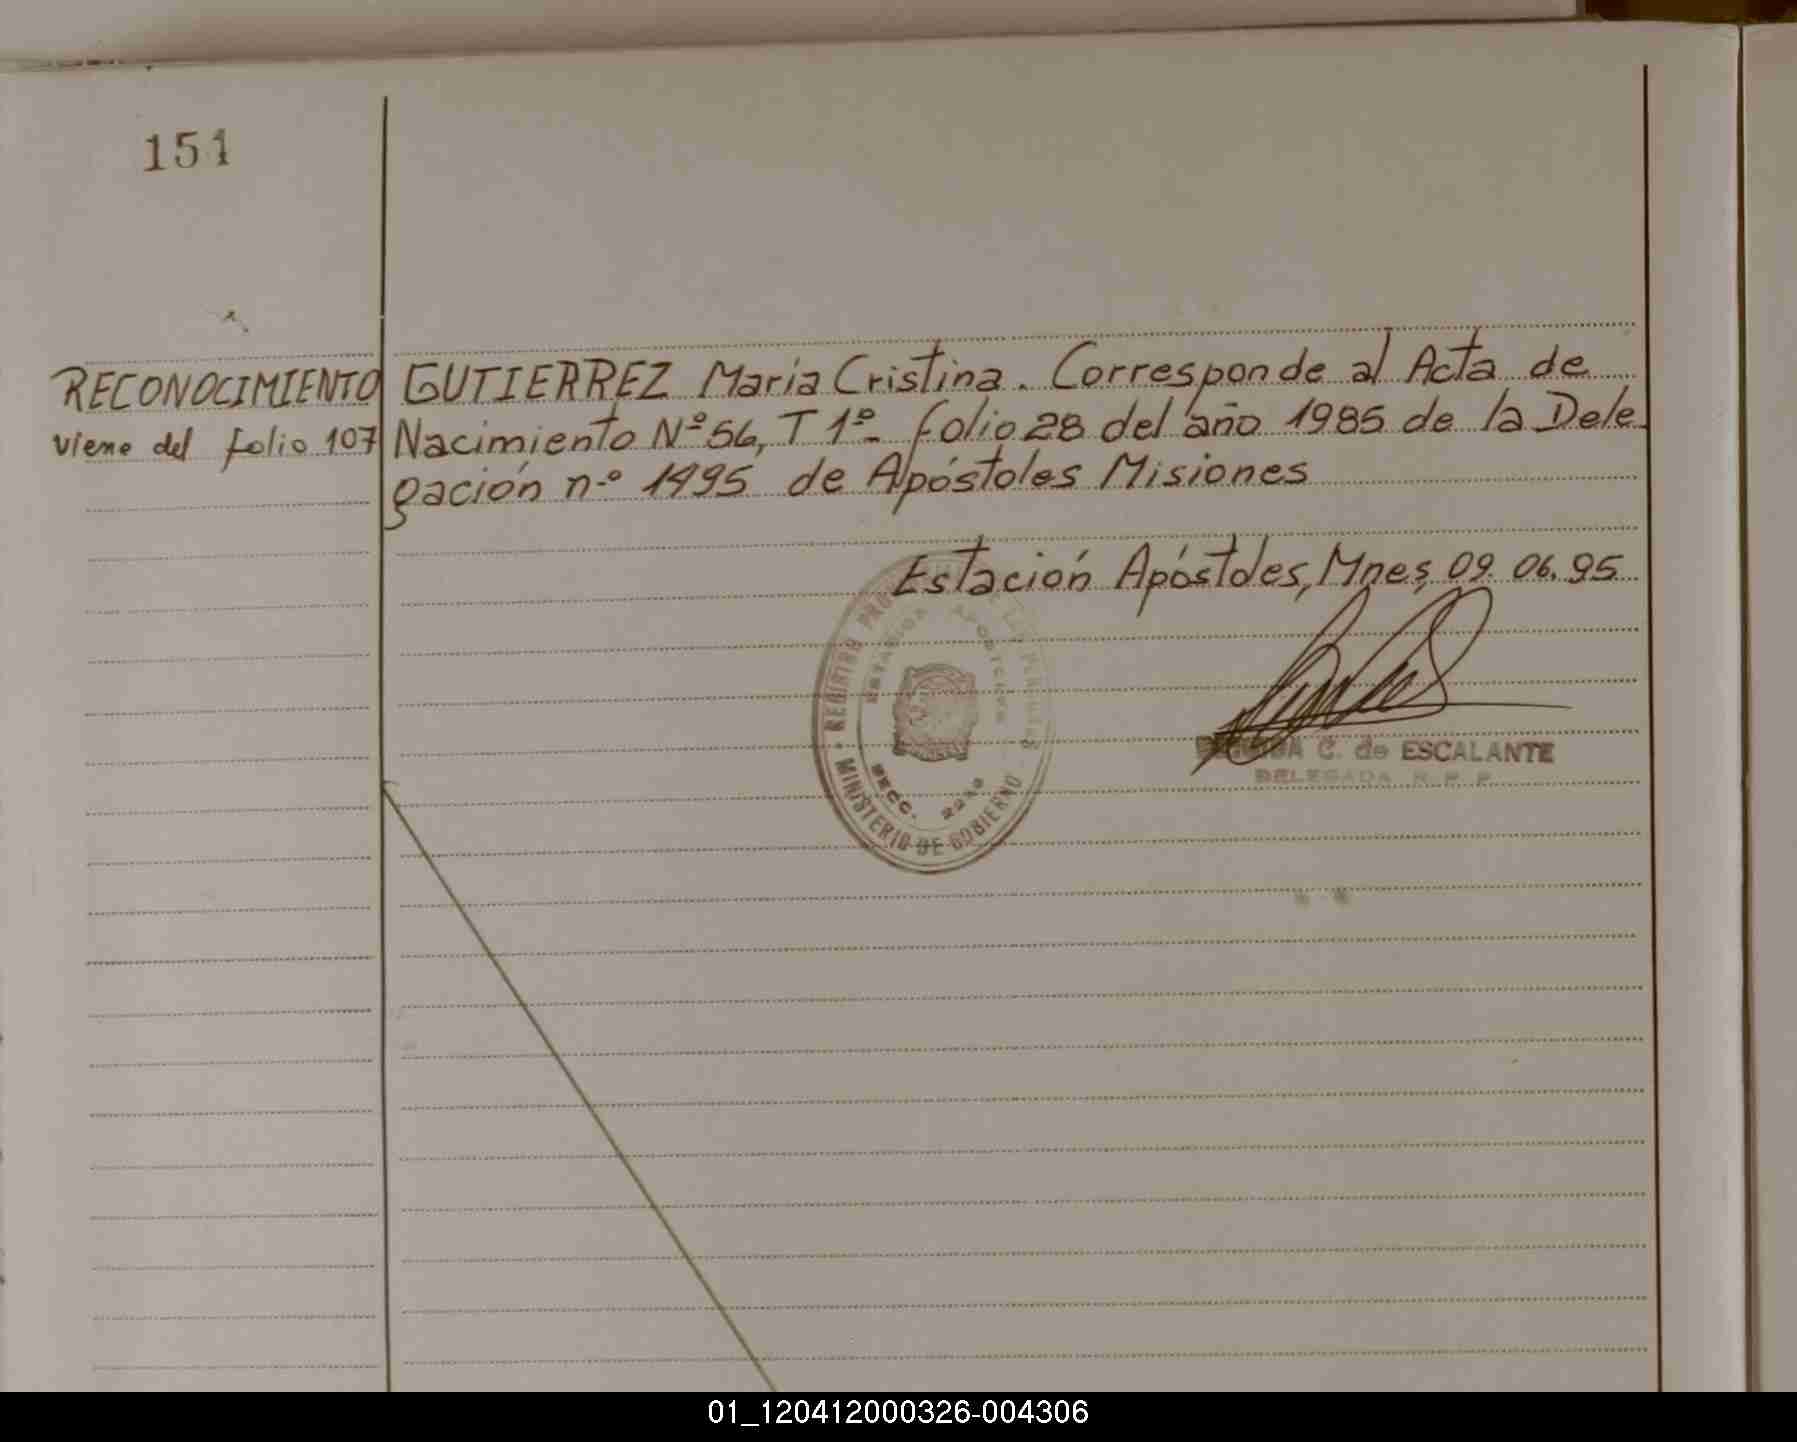 151
RECONOCIMIENTO
viene del folio 107
GUTIERREZ María Cristina. Corresponde al Acta de
Nacimiento Nº 56, T 1º- folio 28 del año 1985 de la Dele
gación n.º 1995 de Apóstoles Misiones
Estación Apóstoles, Mnes, 09. 06. 95
REGISTRO
ESTACION APOSTOLES
SECC.
MINISTERIO DE GOBIERNO
C. de ESCALANTE
DELEGADA R. P. P.
01_120412000326-004306